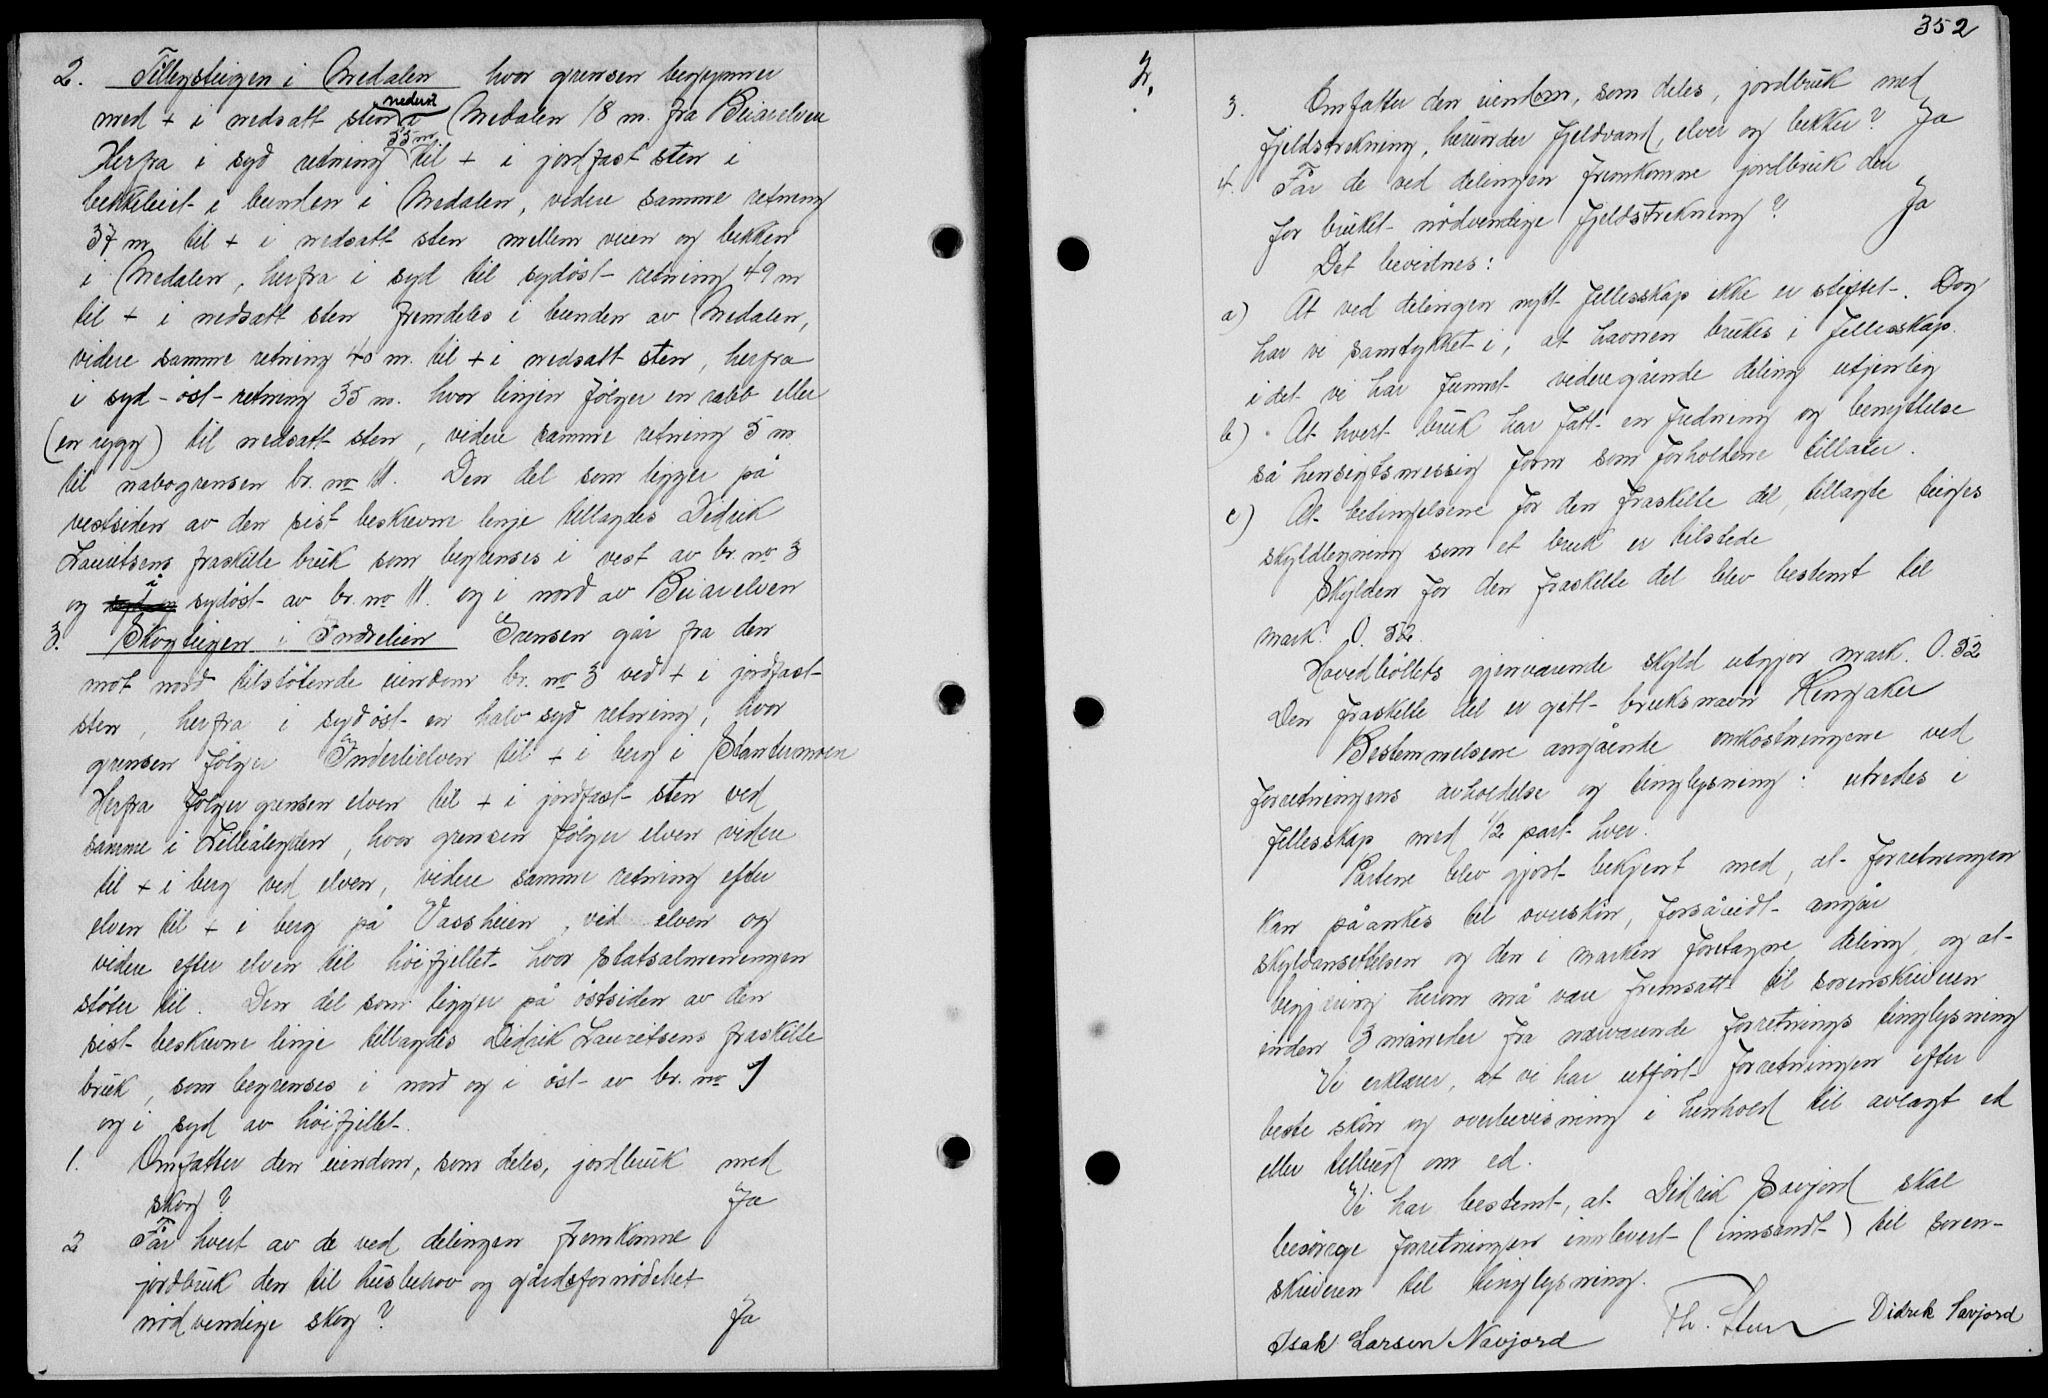 2. Tillegsteigen i Medalen hvor grensen begynner
med + i nedsatt sten nederst i Medalen 18 m. fra Beiarelven
Herfra i syd retning 55 m. til + i jordfast sten i
bekkeleiet i bunden i Medalen, videre samme retning
37 m til + i nedsatt sten mellem veien og bekken
i Medalen, herfra i syd til sydøst retning 49 m
til + i nedsatt sten fremdeles i bunden av Medalen,
videre samme retning 40 m. til + i nedsatt sten, herfra
i syd-øst-retning 35 m. hvor linjen følger en rabb eller
(en rygg) til nedsatt sten, videre samme retning 5 m
til nabogrensen br. no 11. Den del som ligger på
vestsiden av den sist beskrevne linje tillagdes Didrik
Lauritsens fraskilte bruk som begrenses i vest av br. no 3
og i sydøst av br. no 11. og i nord av Beiarelven
3. Skogteigen i Inderlien Grensen går fra den
mot nord tilstøtende eiendom br. no 3 ved + i jordfast
sten, herfra i sydøst en halv syd retning, hvor
grensen følger Inderlielven til + i berg i
Herfra følger grensen elven til + i jordfast sten ved
samme i Lilleålegden, hvor grensen følger elven videre
til + i berg ved elven, videre samme retning efter
elven til + i berg på Vassheien, ved elven og
videre efter elven til høifjellet hvor statsalmenningen
støter til. Den del som ligger på østsiden av den
sist beskrevne linje tillagdes Didrik Lauritsens fraskilte
bruk, som begrenses i nord og i øst av br. no 1
og i syd av høifjellet.
1. Omfatter den eiendom, som deles, jordbruk med
skog? Ja
2 Får hvert av de ved delingen fremkomne
jordbruk den til husbehov og gårdsfornødenhet
nødvendige skog? Ja
352
3. Omfatter den eiendom, som deles, jordbruk med
fjeldstrekning, herunder fjeldvand, elver og bekker? Ja
4. Får de ved delingen fremkomne jordbruk den
for bruket nødvendige fjeldstrekning? Ja
Det bevidnes:
a) At ved delingen nytt fellesskap ikke er stiftet. Dog
har vi samtykket i, at havnen brukes i fellesskap.
idet vi har funnet videregående deling utjenlig
b) At hvert bruk har fått en fredning og benyttelse
så hensigtsmessig form som forholdene tillater.
c) At betingelsene for den fraskilte del, tillagte teiges
skyldlegning som et bruk er tilstede
Skylden for den fraskilte del blev bestemt til
mark. 0.52.
Hovedbøllets gjenværende skyld utgjør mark. 0.52
Den fraskilte del er gitt bruksnavn Kengaker
Bestemmelsene angående omkostningene ved
forretningens avholdelse og tinglysning: utredes i
fellesskap med 1/2 part hver.
Partene blev gjort bekjent med, at forretningen
kan påankes til overskjøn, forsåvidt angår
skyldansettelsen og den i marken foretagne deling, og at
begjæring herom må være fremsatt til sorenskriveren
inden 3 måneder fra nærværende forretnings tinglysning
Vi erklærer, at vi har utført forretningen efter
beste skjøn og overbevisning i henhold til avlagt ed
eller tilbud om ed.
Vi har bestemt, at Didrik Savjord skal
besørge forretningen innlevert (innsendt) til soren-
skriveren til tinglysning.
Isak Larsen Navjord Th. Didrik Savjord